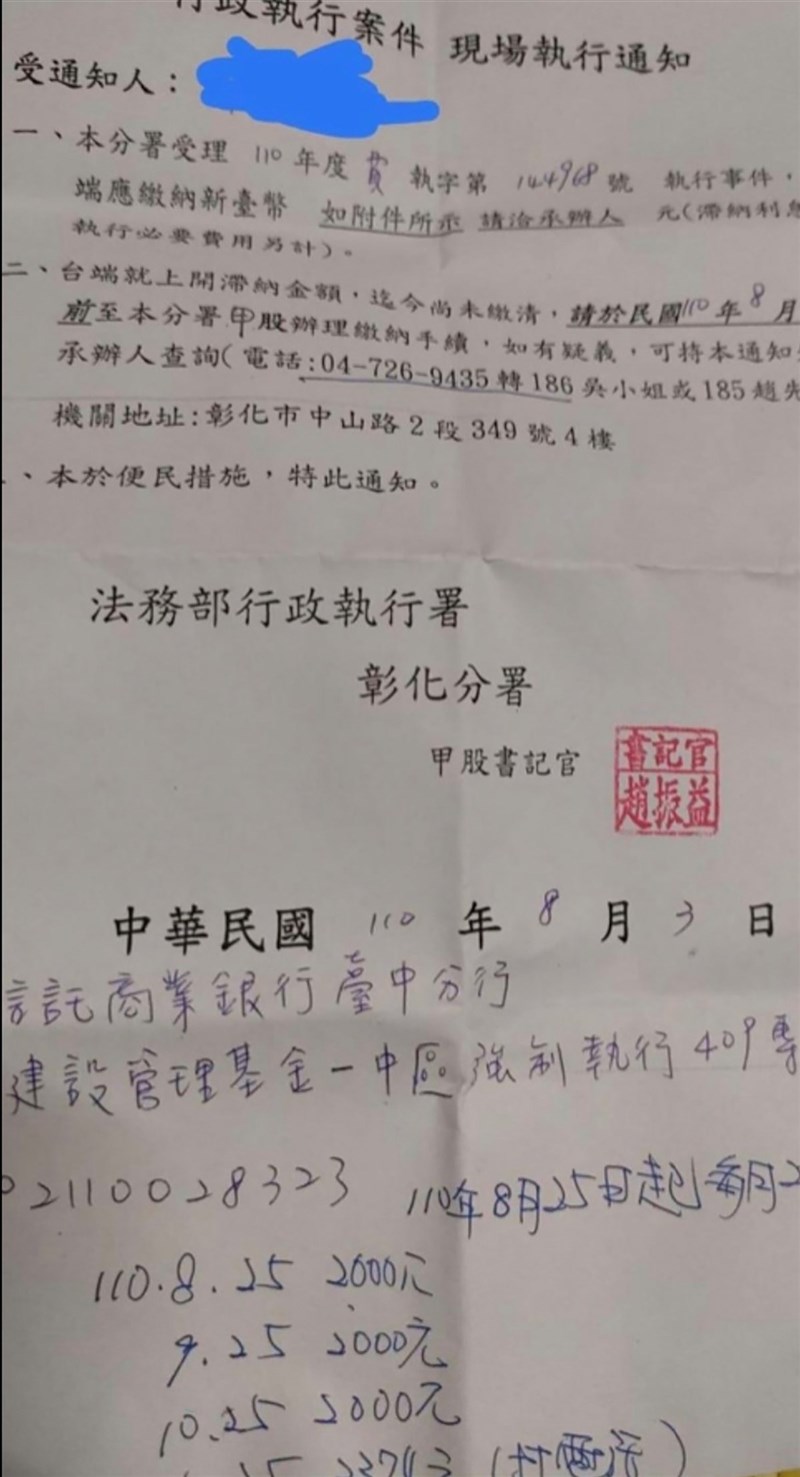 行政執行案件 現場執行通知
受通知人：
一、本分署受理 110 年度 費 執字第 144968 號 執行事件，
端應繳納新臺幣 如附件所示 請洽承辦人 元(滯納利息
執行必要費用另計)。
二、台端就上開滯納金額，迄今尚未繳清，請於民國110年8月
前至本分署甲股辦理繳納手續，如有疑義，可持本通知
承辦人查詢(電話:04-726-9435轉186吳小姐或185趙先
機關地址:彰化市中山路2段349號4樓
、本於便民措施，特此通知。
法務部行政執行署
彰化分署
甲股書記官
書記官
趙振益
中華民國 110 年 8 月 3 日
託商業銀行臺中分行
建設管理基金一中區強制執行409專
02110028323 110年8月25日起每月2
110.8.25 2000元
9.25 2000元
10.25 2000元